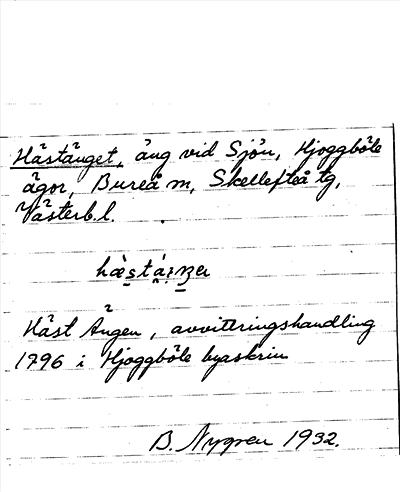 Hästänget, äng vid Sjön, Hjoggböle
ägor, Bureå m, Skellefteå tg,
Västerb.l.
Häst Ängen, avvittringshandling
1796 i Hjoggböle byaskrin
B. Nygren 1932.